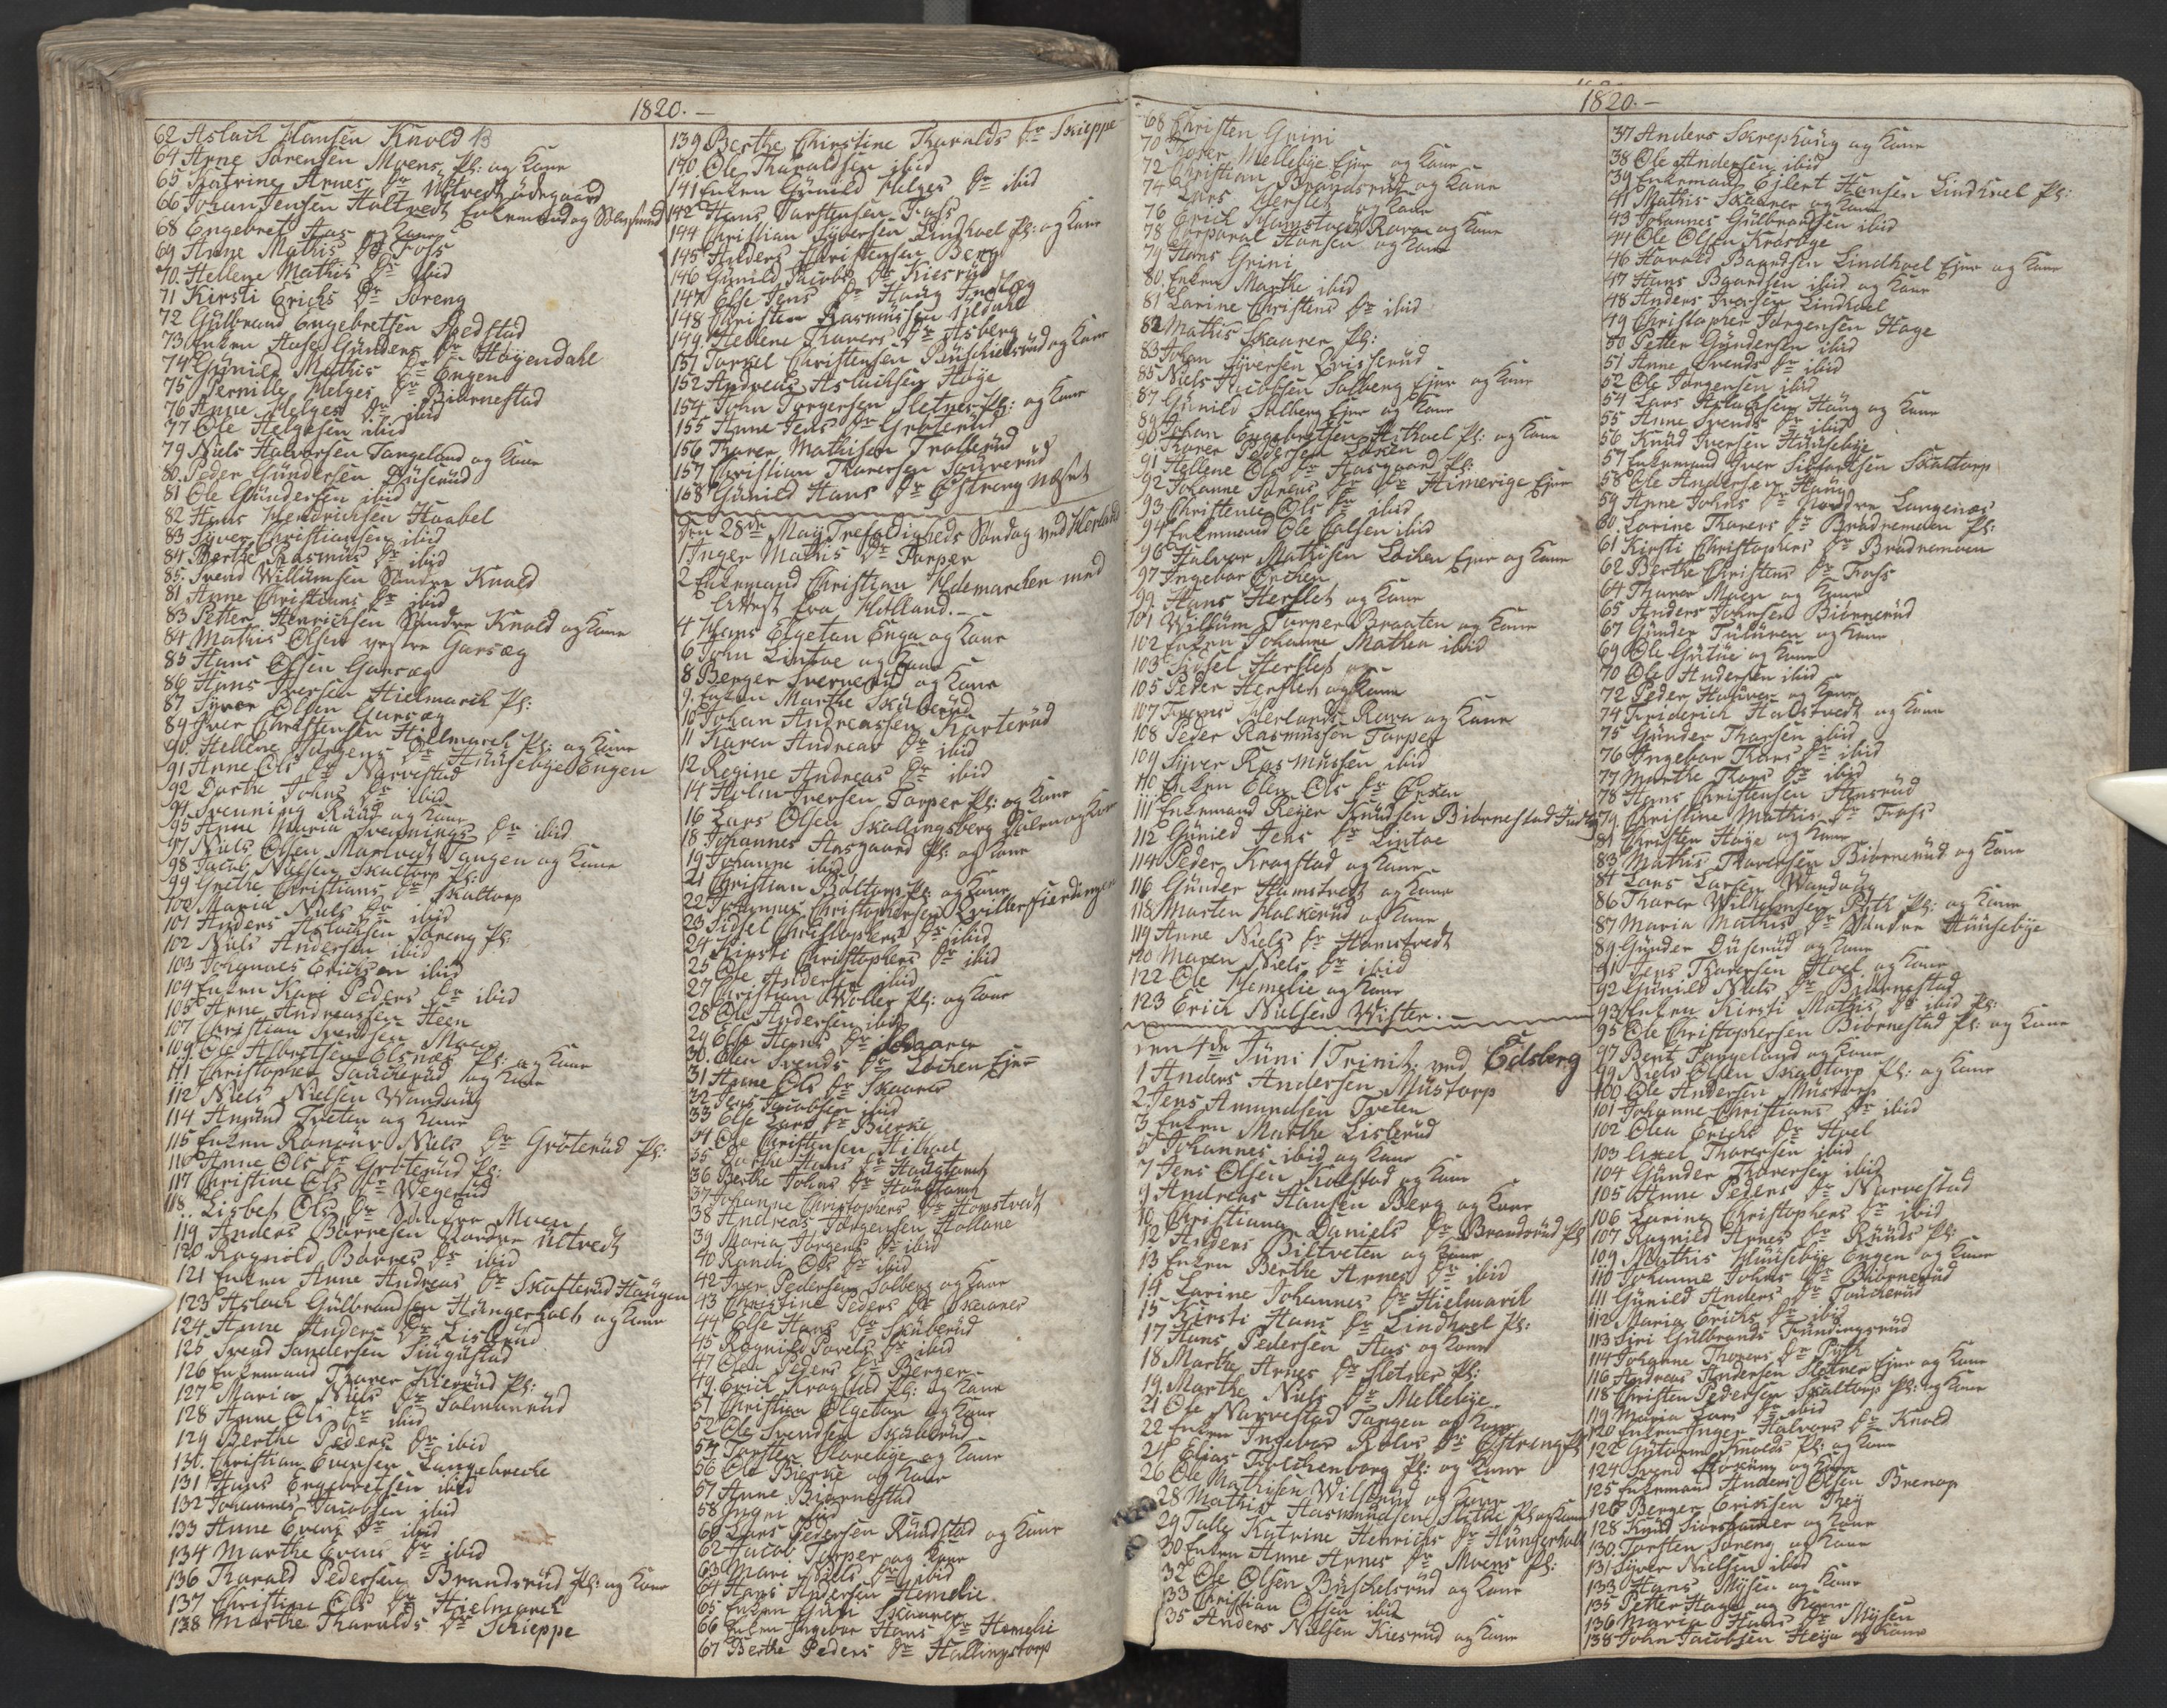 1820.-
62 Aslach Hansen Knold
64 Arne Sørensen Moens Pl: og Kone
65 Katrine Arnes Dr
66 Johan Jensen Haltvedt Enkemand og
68 Engebret Aas og Kone
69 Anne Mathis Dr Foss
70. Hellene Mathis Dr ibid
71 Kirsti Erichs Dr Søreng
72 Gulbrand Engebretsen
73 Enken Aase Gunders Dr Høyendahl
74 Gunild Mathis Dr Engen
75 Pernille Helges Dr Biørnestad
76 Anne Helges Dr ibid
77 Ole Helgesen ibid
79 Niels Halvorsen Tangeland og Kone
80. Peder Gundersen Duserud
81 Ole Gundersen ibid
82 Hans Hendrichsen Haabel
83 Syver Christiansen ibid
84 Berthe Rasmus Dr ibid
85. Svend Willumsen Søndre Knold
81 Anne Christians Dr ibid
83 Petter Henrichsen Søndre Knold og Kone
84 Mathis Olsen vestre Garseg
85 Hans Olsen Garseg
86 Hans Iversen Hielmarch Pl:
87 Syver Olsen Garseg
89 Iver Christensen Hielmarch Pl: og Kone
90. Hellene Jørgens Dr Huusebye Engen
91 Anne Ols Dr Narvestad
92 Dorthe Johns Dr ibid
94 Svenning Ruud og Kone
95 Anne Maria Svennings Dr ibid
97 Niels Olsen Tangen og Kone
98 Jacob Nielsen Skaltorp Pl:
99 Grethe Christians Dr Skaltorp
100 Maria Niels Dr ibid
101 Anders Aslachsen Søreng Pl:
102 Niels Andersen ibid
103 Johannes Erichsen ibid
104 Enken Kari Peders Dr ibid
105 Arne Andreassen Heen
107 Christian Svendsen Moen
109. Ole Albretsen Pl: og Kone
111 Christopher Toucherud og Kone
112 Niels Nielsen Wandung
114 Amund Tveten og Kone
115 Enken Ranou Niels Dr Grøterud Pl:
116 Anne Ols Dr Grøterud Pl:
117 Christine Ols Dr Wegerud
118. Lisbeth Ols Dr Søndre Moen
119 Anders Baaresen Nordre Ultvedt
120 Ragnild Baares Dr ibid
121 Enken Anne Andreas Dr Skofterud Haugen
123 Aslach Gulbrandsen Hungerholt og Kone
124 Anne Anders Dr Lislerud
125 Svend Sandersen
126 Enkemand Thorer Kierud Pl:
127 Maria Niels Dr Salmonrud
128 Anne Ols Dr ibid
129 Berthe Peders Dr ibid
130. Christian Evensen Langebreche
131 Hans Engebretsen ibid
132 Johannes Jacobsen ibid
133 Anne Evens Dr ibid
134 Marthe Evens Dr ibid
136 Tharald Pedersen Brandsrud Pl: og Kone
137 Christine Ols Dr Hielmarch
138 Marthe Tharalds Dr Schieppe
139 Berthe Christine Tharalds Dr Skieppe
140. Ole Tharaldsen ibid
141 Enken Gunild Helges Dr ibid
142 Hans Torstensen Foss
144 Christian Syversen Lindhoel Pl: og Kone
145 Anders Christensen Berg
146 Gunild Jacobs Dr Kiesrud
147 Else Jens Dr Haug
148 Christen Rasmussen Nildahl
149. Hellene Thorers Dr Asberg
151 Torkel Christensen Buschelsrud og Kone
152 Andreas Aslachsen Høye
154 John Torgersen Sletner Pl: og Kone
155 Anne Jens Dr Grøterud
156 Thorer Mathisen Trollerud
157 Christian Thorersen
158 Gunild Hans Dr Østreng
Den 28de May Trefoldigheds Søndag ved Herland
1 Inger Mathis Dr Torper
2 Enkemand Christian Hedemarchen med
Attest fra Høland.-
4 Hans Elgetun Enga og Kone
6 John Lintoe og Kone
8 Berger Sververud og Kone
9. Enken Marthe Skuberud
10 Johan Andreassen Korterud
11 Karen Andreas Dr ibid
12 Regine Andreas Dr ibid
14 Holm Iversen Torper Pl: og Kone
16 Lars Olsen Skallingsberg Dalen og Kone
18 Johannes Aasgaard Pl: og Kone
19 Johanne ibid
21 Christian Boltorp Pl: og Kone
22 Johannes Christophersen Qvillerfierdingen
23 Sidsel Christophers Dr ibid
24 Kirsti Christophers Dr ibid
25 Ole Andersen ibid
27 Christian Woller Pl: og Kone
28 Ole Andersen ibid
29 Else Hans Dr Skaarer
30. Olea Svends Dr Løchen Ejer
31 Anne Ols Dr Skaarer
32 Jens Jacobsen ibid
33 Else Lars Dr Bierke
34 Ole Christensen Hilhoel
35 Dorthe Hans Dr Haugtomt
36 Berthe Johns Dr Haugtomt
37 Johanne Christophers Dr Homstvedt
38 Andreas Jørgensen Hollane
39 Maria Jørgens Dr ibid
40 Randi Ols Dr ibid
42 Iver Pedersen Solberg og Kone
43 Christine Peders Dr Skaarer
44 Else Hans Dr Skuberud
45 Ragnild Povels Dr ibid
47 Olea Peders Dr Berger
49. Erich Kragstad Pl: og Kone
51 Christian Elgetun og Kone
52 Ole Svendsen Skuberud
54 Torsten Slorebye og Kone
56 Ole Bierke og Kone
57 Anne Biørnestad
58 Inger Lund
60 Lars Pedersen Rundstad og Kone
62 Jacob Torper og Kone
63 Mari Niels Dr ibid
64 Hans Andersen Hemelie
65 Enken Guri Skaarer
66 Enken Ingebor Hans Dr Hemelie
67 Berthe Peders Dr Hallingstorp
1820.-
68 Christen Grini
70 Thorer Mellebye Ejer og Kone
72 Christian Brandsrud og Kone
74 Lars Herslet og Kone
76 Erich Homstvedt Rova og Kone
78 Corporal Hansen og Kone
79 Hans Grini
80. Enken Marthe ibid
81 Larine Christens Dr ibid
82 Mathis Skaarer Pl:
83 Johan Syversen Qvisserud
85 Niels Jacobsen Solberg Ejer og Kone
87 Gunild Solberg Ejer og Kone
89 Johan Engebretsen Hithoel Pl: og Kone
90. Thorer Pedersen Løchen
91 Hellene Ols Dr Aasgaard Pl:
92 Johanne Jørens Dr Himerige Ejer
93 Christence Ols Dr ibid
94 Enkemand Ole Colsen ibid
96 Halvor Mathisen Løchen Ejer og Kone
97 Ingebor Ørchen
99. Hans Herslet og Kone
101 Willum Torper Braaten og Kone
102 Enken Johanne Mathea ibid
103 Sidsel Herslet
105 Peder Herslet og Kone
107 Frans Herlands Rova og Kone
108 Peder Rasmussen Torper
109 Syver Rasmussen ibid
110 Enken Elen Ols Dr Ørken
111 Enkemand Reyer Knudsen Biørnestad
112 Gunild Jens Dr Lintoe
114 Peder Kragstad og Kone
116 Gunder Homstvedt og Kone
118 Morten Holkerud og Kone
119 Anne Niels Dr Homstvedt
120 Maren Niels Dr ibid
122 Ole Hemelie og Kone
123 Erich Nielsen Wister.-
Den 4de Juni 1 Trinit: ved Edsberg
1 Anders Andersen Mustorp
2. Jens Amundsen Tveten
3 Enken Marthe Lislerud
5 Johannes ibid og Kone
7 Jens Olsen Kolstad og Kone
9 Andreas Hansen Berg og Kone
10 Christiana Daniels Dr Brandsrud Pl:
12 Anders Biltveten og Kone
13 Enken Berthe Arnes Dr ibid
14 Larine Johannes Dr Hielmarch
15 Kirsti Hans Dr Lindhoel Pl:
17 Hans Pedersen Aas og Kone
18 Marthe Arnes Dr Sletner Pl:
19. Marthe Niels Dr Mellebye
21 Ole Narvestad Tangen og Kone
22 Enken Ingebor Rolvs Dr Østreng Pl:
24 Elias Trolchenborg Pl: og Kone
26 Ole Mathisen Wilserud og Kone
28 Mathis Aasmundsen Slithe Pl: og Kone
29 Talle Katrine Henrichs Dr Hungerholt
30 Enken Anne Arnes Dr Moens Pl:
32 Ole Olsen Buschelsrud og Kone
33 Christian Olsen ibid
35 Anders Nielsen Kiesrud og Kone
37 Anders Skrephoug og Kone
38 Ole Andersen ibid
39 Enkemand Ejlert Hansen Lindhoel Pl:
41 Mathis Skaarer og Kone
43 Johannes Gulbrandsen ibid
44 Ole Olsen Krosbye
46 Harald Baardsen Lindhoel Ejer og Kone
47 Hans Baardsen ibid og Kone
48 Anders Iversen Lindhoel
49 Christopher Jørgensen Hage
50 Petter Gundersen ibid
51 Anne Svends Dr ibid
52 Ole Jørgensen ibid
54 Lars Aslachsen Haug og Kone
55 Anne Svends Dr ibid
56 Knud Iversen Huusebye
57 Enkemand Iver Skaltorp
58 Ole Andersen Haug
59 Anne Johns Dr Nordre Langenæs
60. Larine Thorers Dr Brødremoen Pl:
61 Kirsti Christophers Dr Brødremoen
62 Berthe Christens Dr Foss
64 Thorer Moen og Kone
65 Anders Johnsen Biørnerud
67 Gunder Tuluren og Kone
69 Ole Gutue og Kone
70 Ole Andersen ibid
72 Peder og Kone
74 Friderich Haltvedt og Kone
75 Gunder Thorsen ibid
76 Ingebor Thors Dr ibid
77 Marthe Thors Dr ibid
78 Hans Christensen Hensrud
79. Christine Mathis Dr Foss
81 Christen Høye og Kone
83 Mathis Thorersen Biørnerud og Kone
84 Lars Larsen Wandung
86 Thorer Wilhelmsen Puth Pl: og Kone
87 Maria Mathis Dr Søndre Huusebye
89 Gunder Duserud og Kone
91 Jens Thorersen Hoel og Kone
92 Gunild Niels Dr Biørnestad
93 Enken Kirsti Mathis Dr ibid Pl:
95 Ole Christophersen Biørnestad Pl: og Kone
97 Bent Tangeland og Kone
99 Niels Olsen Skaltorp Pl: og Kone
100 Ole Andersen Mustorp
101 Johanne Christians Dr ibid
102 Olea Erichs Dr Hoel
103 Axel Thorersen ibid
104 Gunder Thorersen ibid
105 Anne Peders Dr Narvestad
106 Larine Christophers Dr ibid
107 Ragnild Arnes Dr Ruuds Pl:
109 Mathis Huusebye Engen og Kone
110 Johanne Johns Dr Biørnerud
111 Gunild Anders Dr Toucherud
112 Maria Erichs Dr ibid
113 Siri Gulbrands
114 Johanne Thorers Dr Puth
116 Andreas Andersen Sletner Ejer og Kone
118 Christen Pedersen Skaltorp Pl: og Kone
119 Maria Lars Dr ibid
120 Enken Inger Halvors Dr Knold
122 Gutorm Knolds Pl: og Kone
124 Svend og Kone
125 Enkemand Anders Olsen Brenop
126 Berger Erichsen Thøy
128 Knud og Kone
130. Torsten Søreng og Kone
131 Syver Nielsen ibid
133 Hans Mysen og Kone
135 Petter Hage og Kone
136 Maria Hans Dr Mysen
138 John Jacobsen Heye og Kone